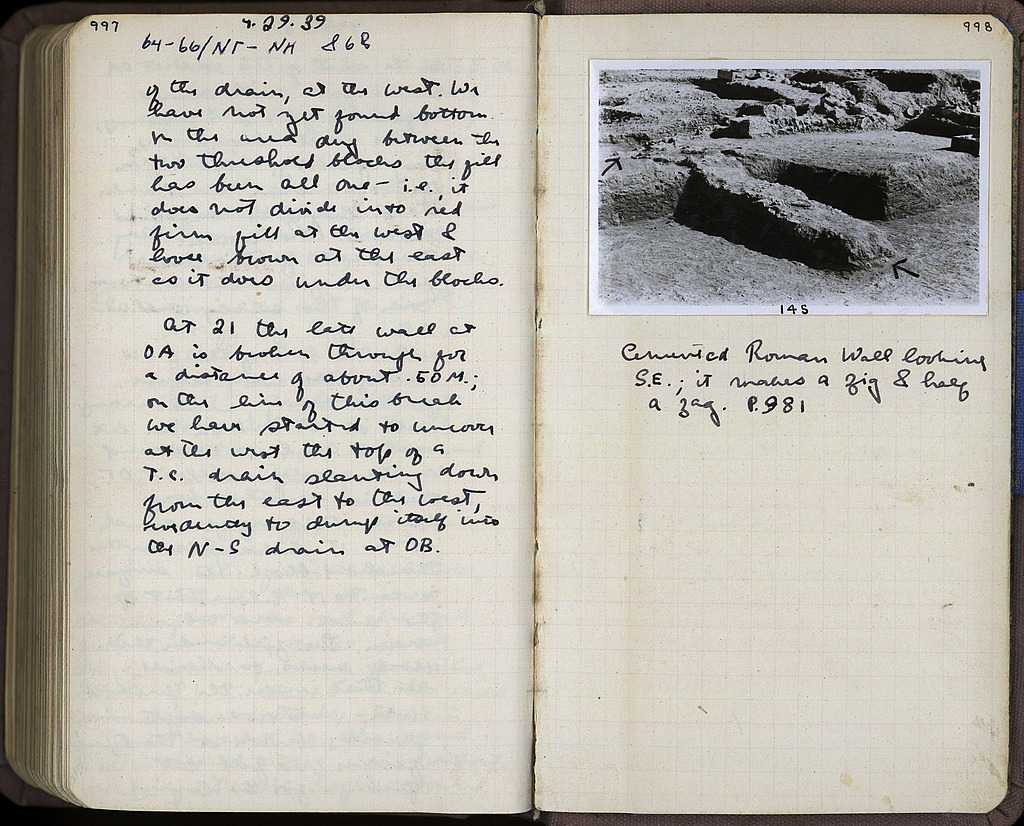 997
4.29.39
64-66/NΓ-NH 868
of the drain, at the west. We
have not yet found bottom.
In the area dug between the
two threshold blocks the fill
has been all one – i.e. it
does not divide into red
firm fill at the west &
loose brown at the east
as it does under the blocks.
At 21 the late wall at
OA is broken through for
a distance of about .50 M.;
on the line of this break
we have started to uncover
at the west the top of a
T.C. drain slanting down
from the east to the west,
evidently to dump itself into
the N-S drain at OB.
998
145
Cemented Roman Wall looking
S.E.; it makes a zig & half
a zag. P.981